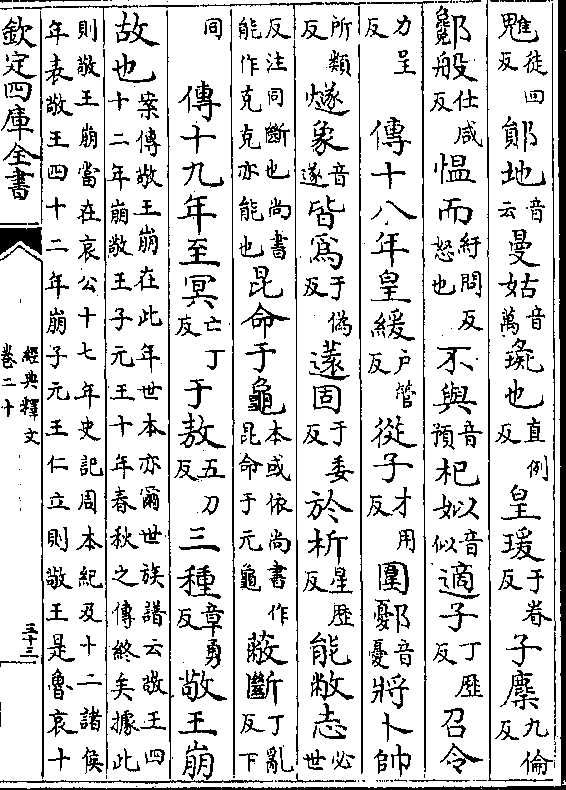 魋徒回反鄖地音云曼姑音萬璏也直例反皇瑗于眷反子麇九倫反
鄤般仕咸反愠而紆問反怒也不與音預杞姒音似適子丁歷反召令
力呈反傳十八年皇緩戶管反從子才用反圍鄾音憂將卜帥
所類反燧象音遂皆爲于偽反薳固于委反於析星歴反能蔽志必世
反注同斷也尚書能作克克亦能也昆命于龜本或依尚書作昆命于元龜蔽斷丁亂反下
同傳十九年至冥亡丁反于敖五刀反三種章勇反敬王崩
故也案傳敬王崩在此年世本亦爾世族譜云敬王四十二年崩敬王子元王十年春秋之傳終矣據此
則敬王崩當在哀公十七年史記周本紀及十二諸侯年表敬王四十二年崩子元王仁立則敬王是魯哀十
欽定四庫全書
經典釋文
卷二十
三十三